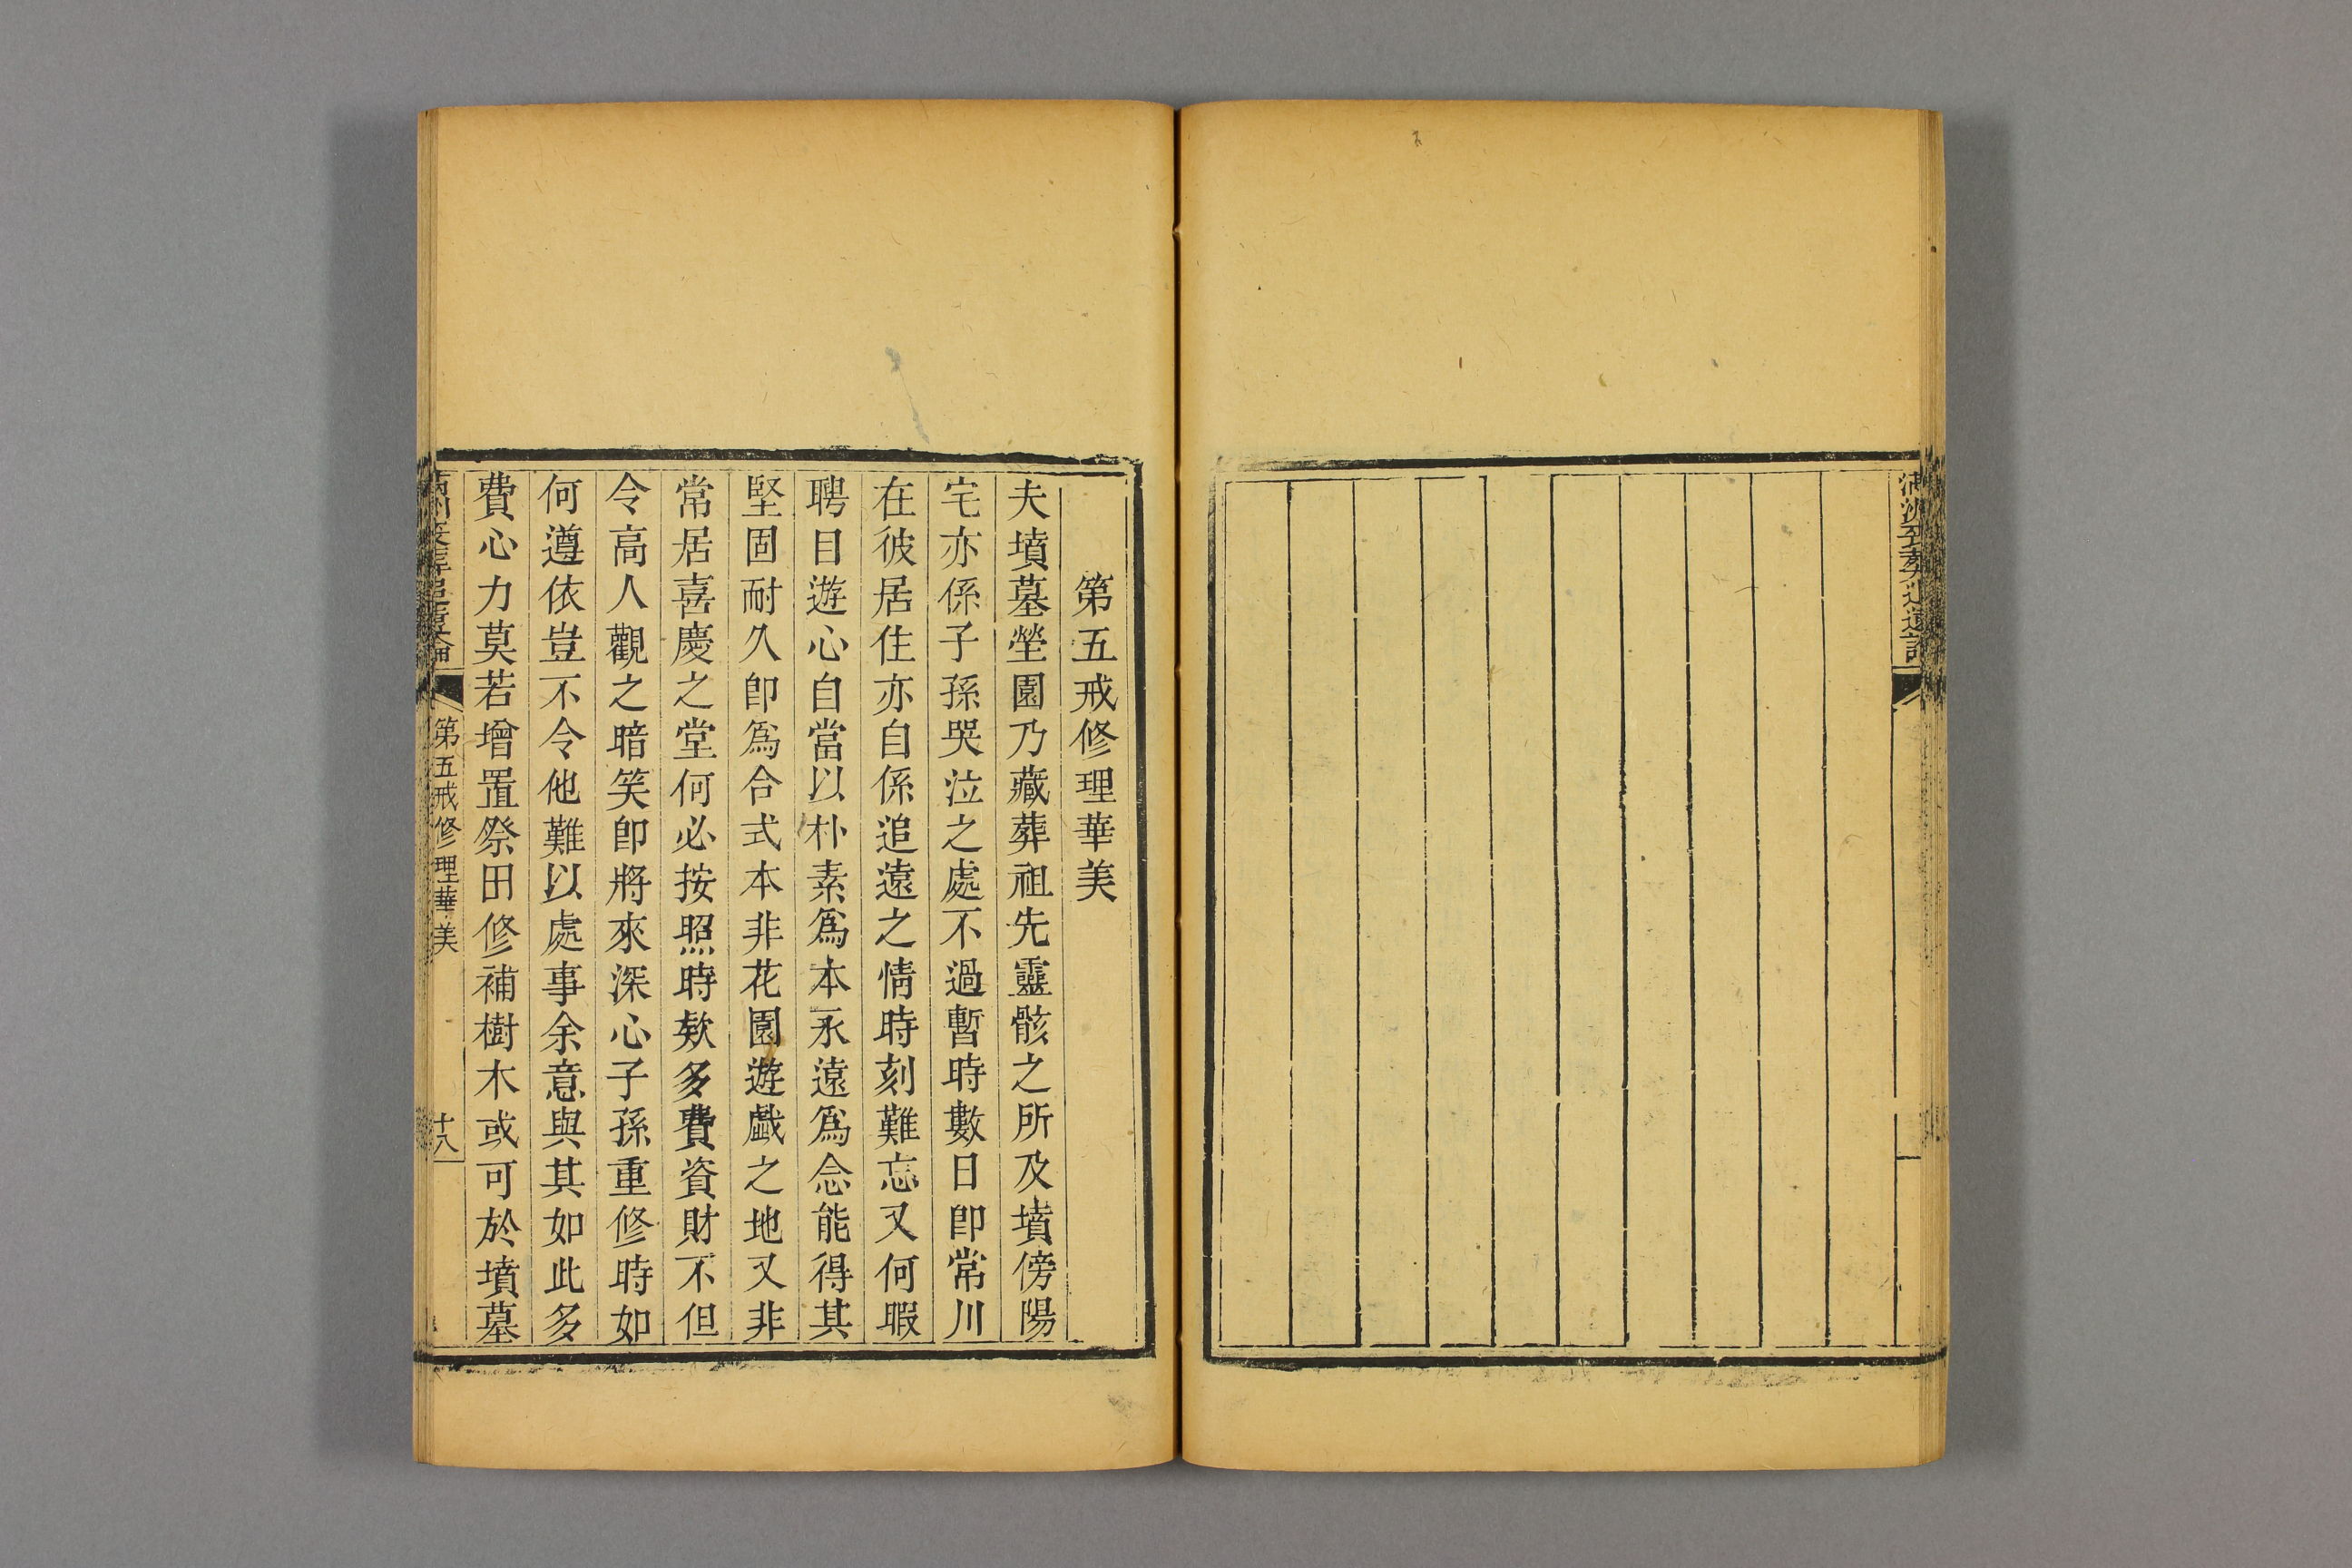 第五戒修理華美
夫墳墓塋園乃藏葬祖先靈骸之所及墳傍陽
宅亦係子孫哭泣之處不過暫時數日卽常川
在彼居住亦自係追遠之情時刻難忘又何暇
聘目遊心自當以朴素爲本永遠爲念能得其
堅固耐久卽爲合式本非花園遊戲之地又非
常居喜慶之堂何必按照時欵多費資財不但
令高人觀之暗笑卽將來深心子孫重修時如
何遵依豈不令他難以處事余意與其如此多
費心力莫若增置祭田修補樹木或可於墳墓
第五戒修理華美
十八